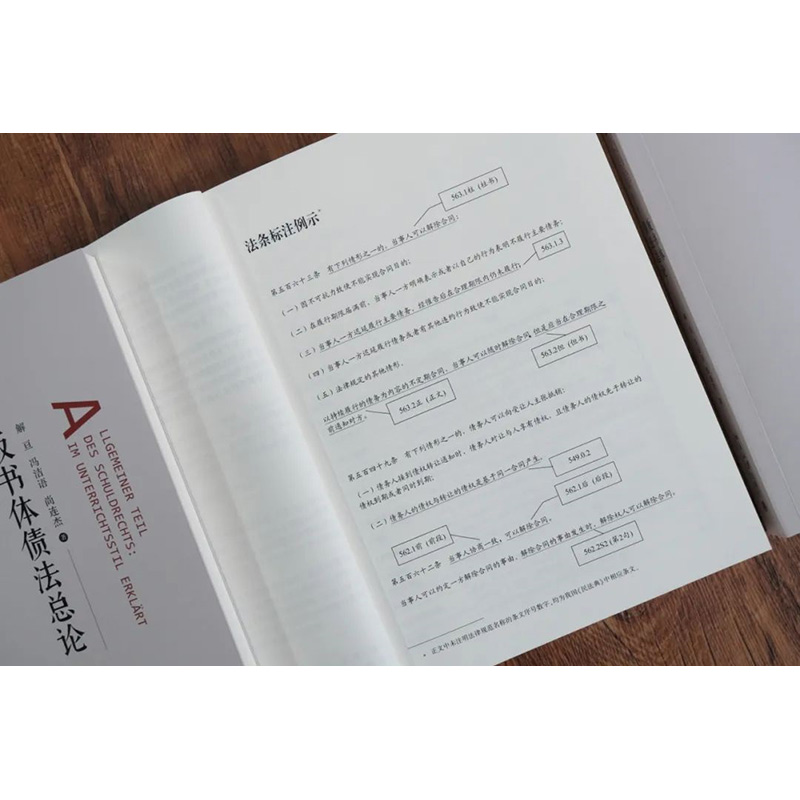 解 亘 冯洁语 尚连杰 著
板书体债法总论
ALLGEMEINER TEIL
DES SCHULDRECHTS:
IM UNTERRICHTSSTIL ERKLÄRT
法条标注例示*
563.1柱 (柱书)
第五百六十三条 有下列情形之一的，当事人可以解除合同：
(一) 因不可抗力致使不能实现合同目的；
(二) 在履行期限届满前，当事人一方明确表示或者以自己的行为表明不履行主要债务；
563.1.3
(三) 当事人一方迟延履行主要债务，经催告后在合理期限内仍未履行；
(四) 当事人一方迟延履行债务或者有其他违约行为致使不能实现合同目的；
(五) 法律规定的其他情形。
以持续履行的债务为内容的不定期合同，当事人可以随时解除合同，但是应当在合理期限之
前通知对方。
563.2正 (正文)
563.2但 (但书)
第五百四十九条 有下列情形之一的，债务人可以向受让人主张抵销：
(一) 债务人接到债权转让通知时，债务人对让与人享有债权，且债务人的债权先于转让的
债权到期或者同时到期；
549.0.2
(二) 债务人的债权与转让的债权是基于同一合同产生。
562.1前 (前段)
562.1后 (后段)
第五百六十二条 当事人协商一致，可以解除合同。
当事人可以约定一方解除合同的事由。解除合同的事由发生时，解除权人可以解除合同。
562.2S2 (第2句)
* 正文中未注明法律规范名称的条文序号数字，均为我国《民法典》中相应条文。